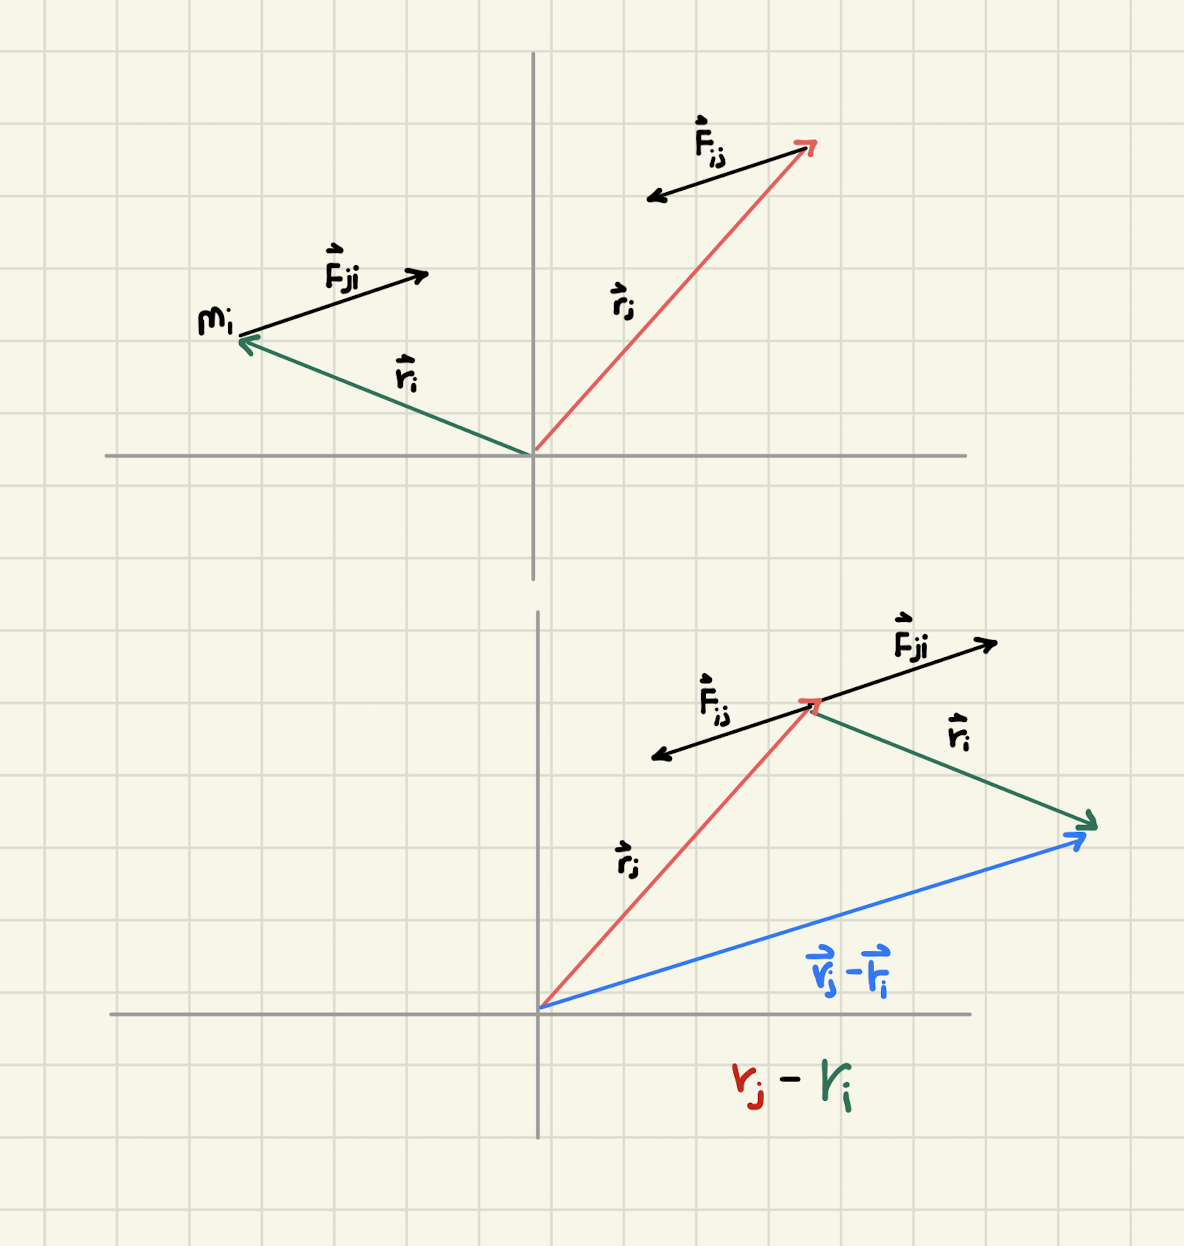 F⃗ij
F⃗ji
mi
r⃗j
r⃗i
F⃗ji
F⃗ij
r⃗i
r⃗j
r⃗j - r⃗i
rj - ri